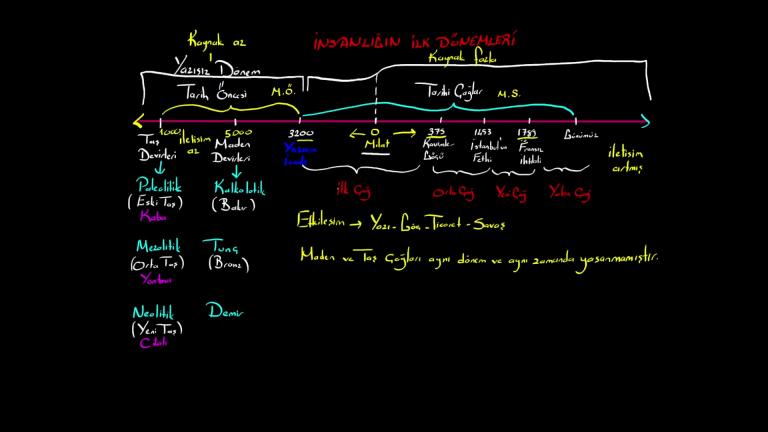 Kaynak az
İNSANLIĞIN İLK DÖNEMLERİ
Kaynak fazla
Yazısız Dönem
Tarih Öncesi M.Ö.
Tarihi Çağlar M.S.
5000 3200 0 375 1453 1789 Günümüz
Taş Devirleri
iletişim az
Maden Devirleri
Milat
Kavimler Göçü
İstanbul'un Fethi
Fransız ihtilali
iletişim artmış
İlk Çağ Orta Çağ Yeni Çağ Yakın Çağ
Paleolitik Kalkolitik
(Eski Taş) (Bakır)
Kaba
Etkileşim → Yazı - Göç - Ticaret - Savaş
Mezolitik Tunç
(Orta Taş) (Bronz)
Yontma
Maden ve Taş Çağları aynı dönem ve aynı zamanda yaşanmamıştır.
Neolitik Demir
(Yeni Taş)
Cilalı